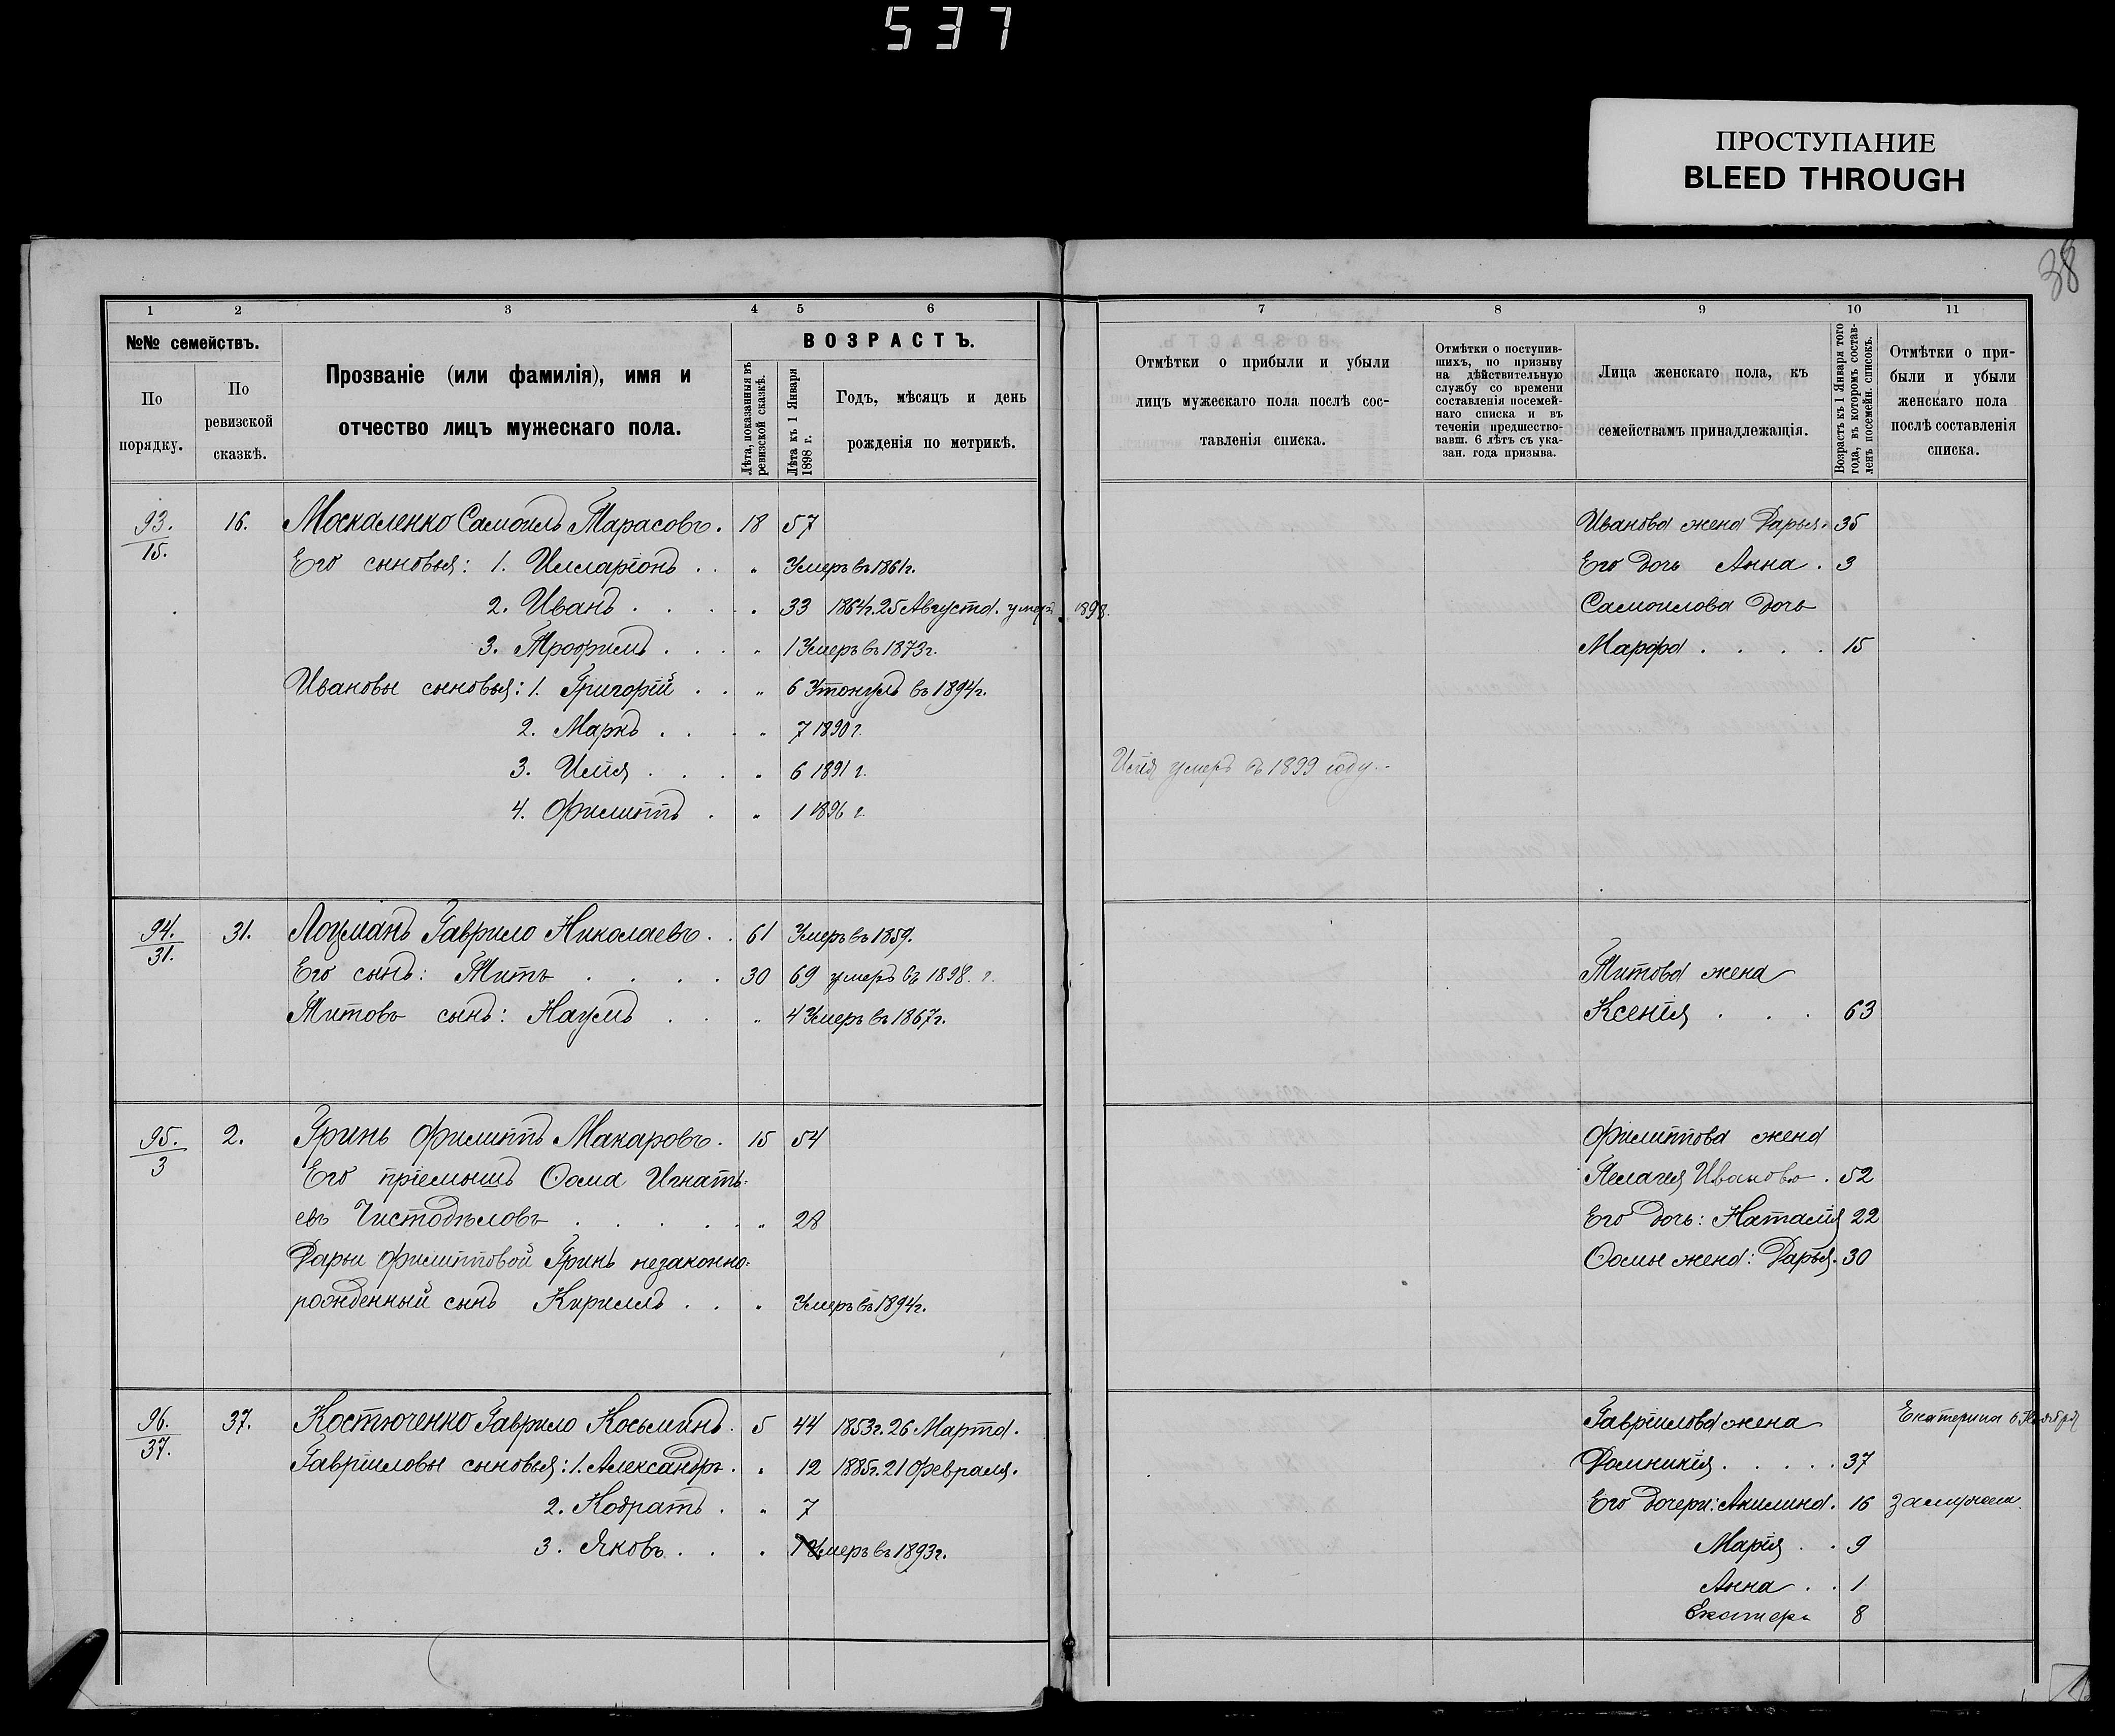 537
ПРОСТУПАНИЕ
BLEED THROUGH
38
1 2 3 4 5 6
№№ семействъ.
По порядку.
По ревизской сказкѣ.
Прозваніе (или фамилія), имя и
отчество лицъ мужескаго пола.
ВОЗРАСТЪ.
Лѣта, показанныя въ ревизской сказкѣ.
Лѣта къ 1 Января 1898 г.
Годъ, мѣсяцъ и день
рожденія по метрикѣ.
93. 16. Москаленко Самоилъ Тарасовъ. 18 57
15.
Его сыновья: 1. Илларіонъ . . " Умеръ въ 1861 г.
2. Иванъ . . . . " 33 1864 г. 25 Августа. умеръ 1898.
3. Трофимъ . . . " 1 Умеръ въ 1873 г.
Ивановы сыновья: 1. Григорій . . " 6 Утонулъ въ 1894 г.
2. Маркъ . . . " 7 1890 г.
3. Илія . . . " 6 1891 г.
4. Филиппъ . " 1 1896 г.
94. 31. Лоцманъ Гаврило Николаевъ . . 61 Умеръ въ 1859.
31.
Его сынъ: Титъ . . . . 30 69 умеръ въ 1898. г.
Титовъ сынъ: Наумъ . . " 4 Умеръ въ 1867 г.
95. 2. Гринь Филиппъ Макаровъ. 15 54
3
Его пріемышъ Ѳома Игнать-
евъ Чистодѣловъ . . . . . " 28
Дарьи Филипповой Гринь незаконно-
рожденный сынъ Кириллъ . . " Умеръ въ 1894 г.
96. 37. Костюченко Гаврило Косьминъ. 5 44 1853 г. 26 Марта.
37.
Гавріиловы сыновья: 1. Александръ . " 12 1885 г. 21 Февраля.
2. Кодратъ . " 7
3. Яковъ . . . Умеръ въ 1893 г.
7 8 9 10 11
Отмѣтки о прибыли и убыли
лицъ мужескаго пола послѣ сос-
тавленія списка.
Отмѣтки о поступив-
шихъ, по призыву
на дѣйствительную
службу со времени
составленія посемей-
наго списка и въ
теченіи предшество-
вавш. 6 лѣтъ съ ука-
зан. года призыва.
Лица женскаго пола, къ
семействамъ принадлежащія.
Возрастъ къ 1 Января того
года, въ которомъ состав-
ленъ посемейн. списокъ.
Отмѣтки о при-
были и убыли
женскаго пола
послѣ составленія
списка.
Иванова жена Дарья. 35
Его дочь Анна . 3
Самоилова дочь
Марфа . . . . 15
Илія умеръ въ 1899 году.
Титова жена
Ксенія . . . 63
Филиппова жена
Пелагея Иванова . 52
Его дочь: Наталія 22
Ѳомы жена: Дарья. 30
Гавріилова жена Екатерина
Домникія . . . . . 37
Его дочери: Акилина. 16 замужем.
Марія . . 9
Анна . . 1
Екатери 8